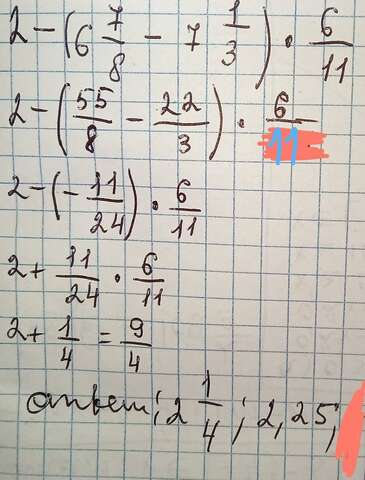 2 - (6 7/8 - 7 1/3) · 6/11
2 - (55/8 - 22/3) · 6/11
2 - (- 11/24) · 6/11
2 + 11/24 · 6/11
2 + 1/4 = 9/4
ответ: 2 1/4 ; 2,25;